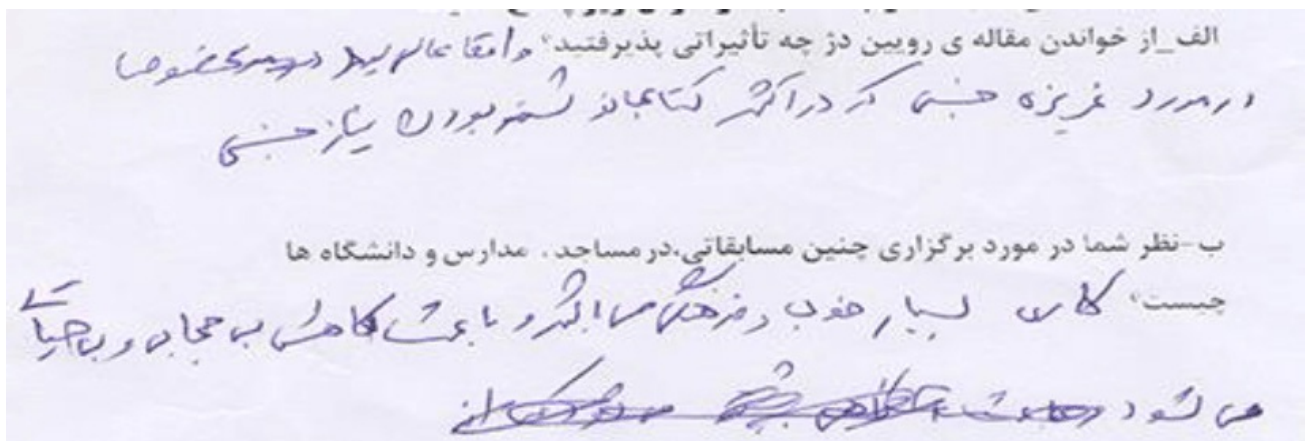 الف_از خواندن مقاله ی رویین دژ چه تأثیراتی پذیرفتید؟ واقعا عالی بود مخصوصا
در مورد غریزه جنسی که در اکثر کتابها نوشته بودن نیاز جنسی
ب-نظر شما در مورد برگزاری چنین مسابقاتی،در مساجد . مدارس و دانشگاه ها
چیست؟ کاری بسیار خوب و فرهنگی می باشد و باعث کاهش بی حجابی و بی حیائی
می شود